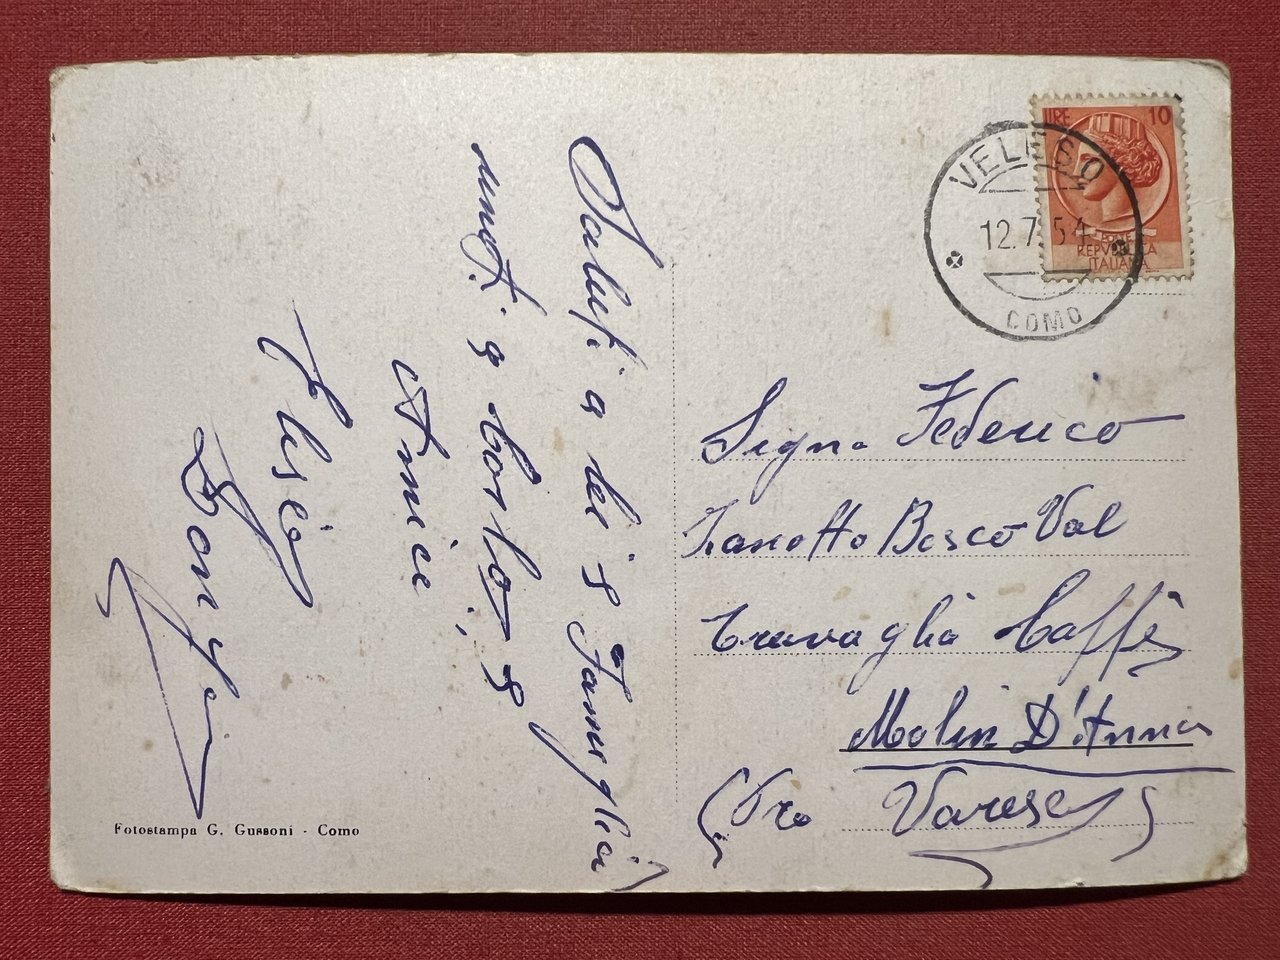 Saluti a lei e Famiglia
uniti a Carlo, e
Amici
Eliseo
LIRE 10
POSTE
REPVBBLICA
ITALIANA
VELESO
12.7.54
COMO
Sign. Federico
Zanotto Bosco Val
travaglia Caffè
Molin D'Anna
(Pro Varese)
Fotostampa G. Gussoni - Como